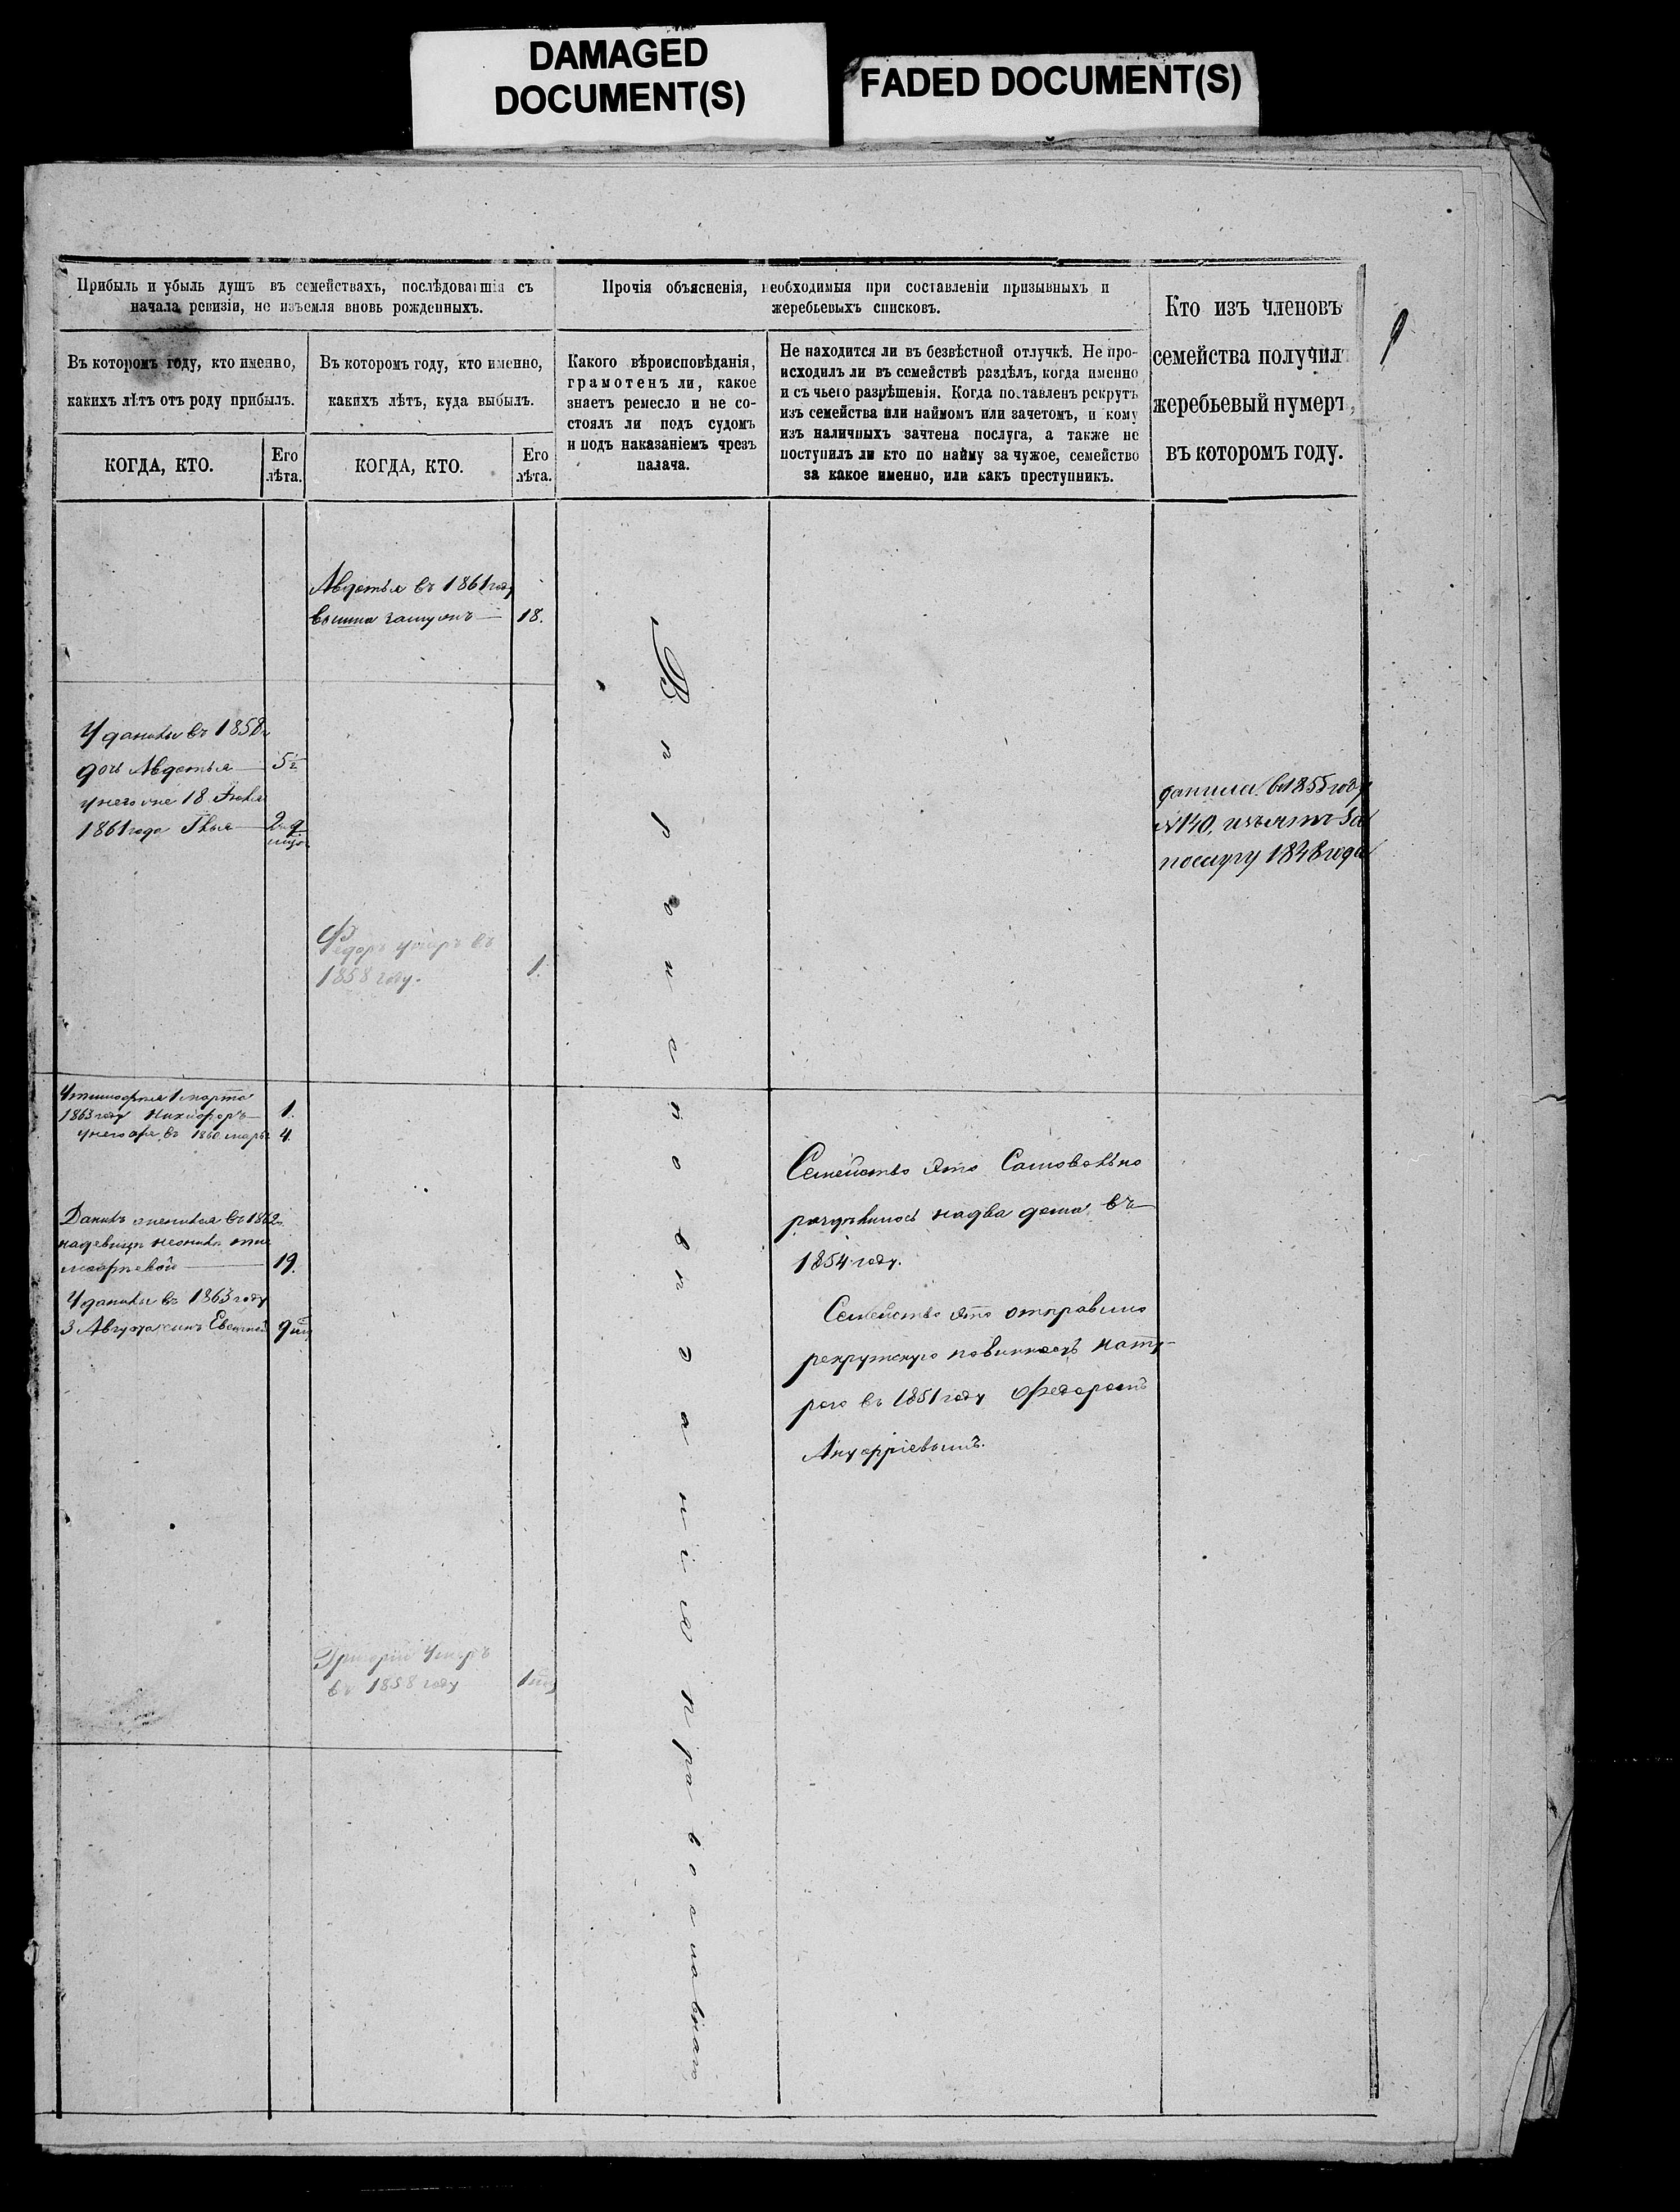 DAMAGED
DOCUMENT(S)
FADED DOCUMENT(S)
9
Прибыль и убыль душъ въ семействахъ, послѣдовавшія съ
начала ревизіи, не изъемля вновь рожденныхъ.
Въ которомъ году, кто именно,
какихъ лѣтъ отъ роду прибылъ.
КОГДА, КТО.
Его
лѣта.
Въ которомъ году, кто именно,
какихъ лѣтъ, куда выбылъ.
КОГДА, КТО.
Его
лѣта.
Прочія объясненія, необходимыя при составленіи призывныхъ и
жеребьевыхъ списковъ.
Какого вѣроисповѣданія,
грамотенъ ли, какое
знаетъ ремесло и не со-
стоялъ ли подъ судомъ
и подъ наказаніемъ чрезъ
палача.
Не находится ли въ безвѣстной отлучкѣ. Не про-
исходилъ ли въ семействѣ раздѣлъ, когда именно
и съ чьего разрѣшенія. Когда поставленъ рекрутъ
изъ семейства или наймомъ или зачетомъ, и кому
изъ наличныхъ зачтена послуга, а также не
поступилъ ли кто по найму за чужое, семейство
за какое именно, или какъ преступникъ.
Кто изъ членовъ
семейства получилъ
жеребьевый нумеръ,
въ которомъ году.
Авдотья въ 1861 году
вышла замужъ — 18.
У данилы въ 1858 г
дочь Авдотья — 5 г
у него же 18 Іюля
1861 года Илья — 2
данила въ 1855 году
№ 140, изъятъ за
послугу 1848 года
Федоръ умеръ въ
1858 году. 1.
Вѣроисповѣданія православнаго
У тимофея 1 марта
1863 году Никифоръ — 1.
у него же въ 1860 4.
Данилъ женился въ 1862 г
на девицѣ
19.
У данилы въ 1863 году
3 Августа сынъ Евсигней 9
Семейство это Самовольно
раздѣлилось на два дома въ
1854 году.
Семейство это отправило
рекрутскую повинность нату-
рою въ 1851 году Федоромъ
Ануфріевымъ.
Григорій Умеръ
въ 1858 году 1